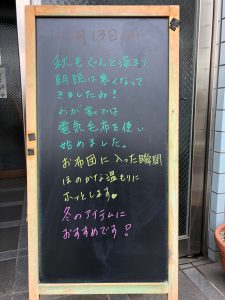 月13日
秋もぐんと深まり
朝晩は寒くなって
きましたね！
わが家では
電気毛布を使い
始めました。
お布団に入った瞬間
ほのかな温もりに
ホッとします
冬のアイテムに
おすすめです！